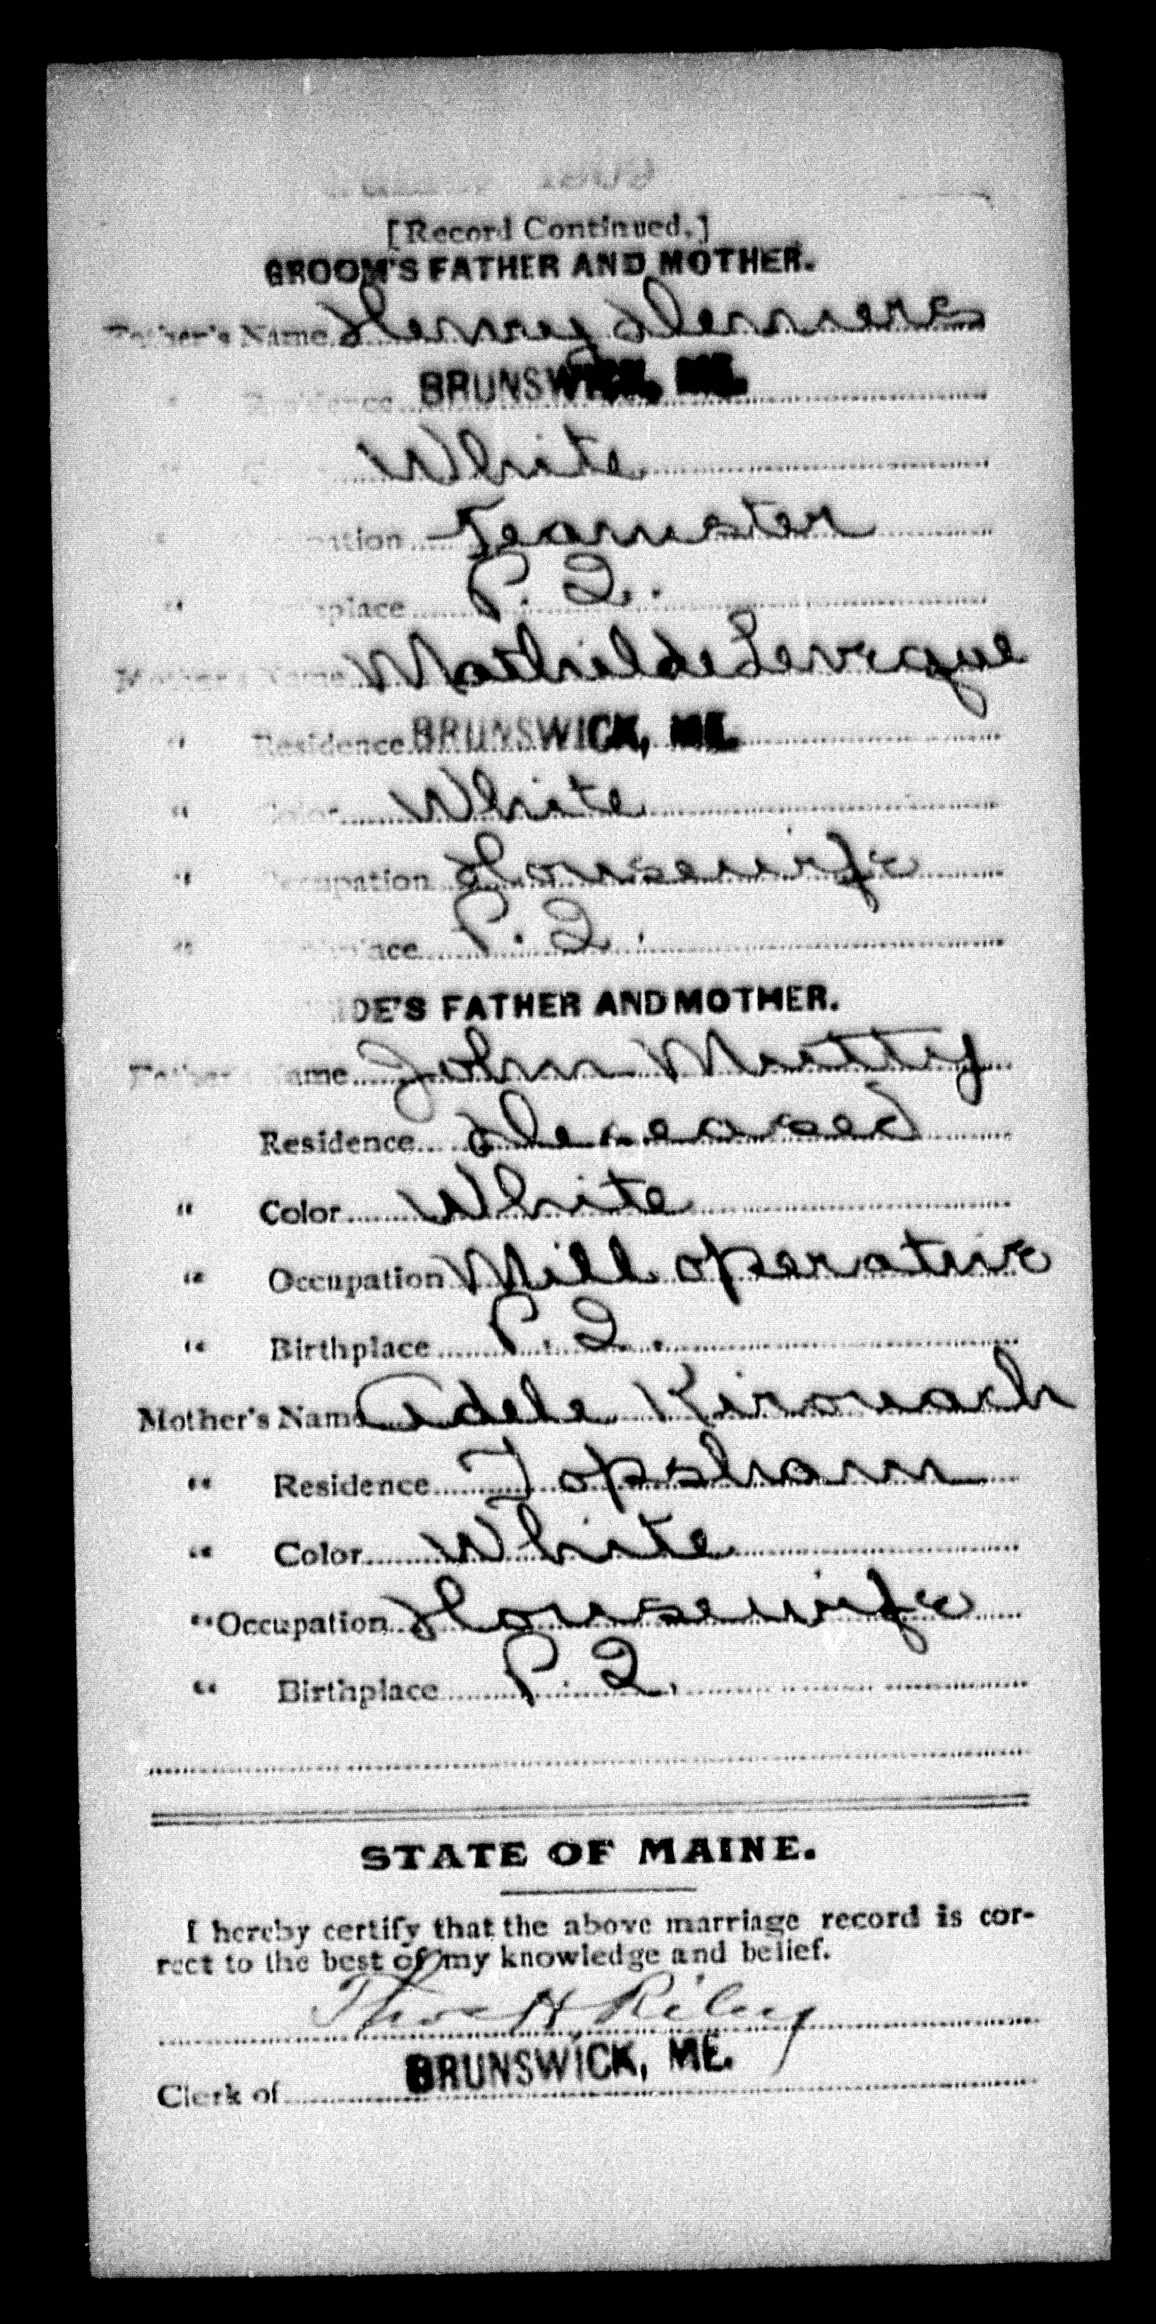 1909
[Record Continued.]
GROOM'S FATHER AND MOTHER.
Father's Name Henry Demers
" Residence BRUNSWICK, ME.
" White
" Occupation Teamster
" Birthplace P. Q.
Mother's Name Mathilde Levesque
" Residence BRUNSWICK, ME.
" Color White
" Occupation Housewife
" Birthplace P. Q.
BRIDE'S FATHER AND MOTHER.
Father's Name John Mutty
Residence Deceased
" Color White
" Occupation Mill operative
" Birthplace P. Q.
Mother's Name Adele Kirouach
" Residence Topsham
" Color White
" Occupation Housewife
" Birthplace P. Q.
STATE OF MAINE.
I hereby certify that the above marriage record is cor-
rect to the best of my knowledge and belief.
Thos H. Riley
Clerk of BRUNSWICK, ME.